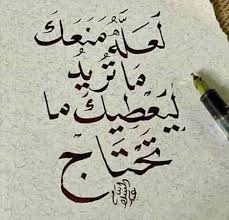 لَعَلَّهُ مَنَعَكَ
مَا تُرِيدُ
لِيُعْطِيكَ مَا
تَحْتَاجُ